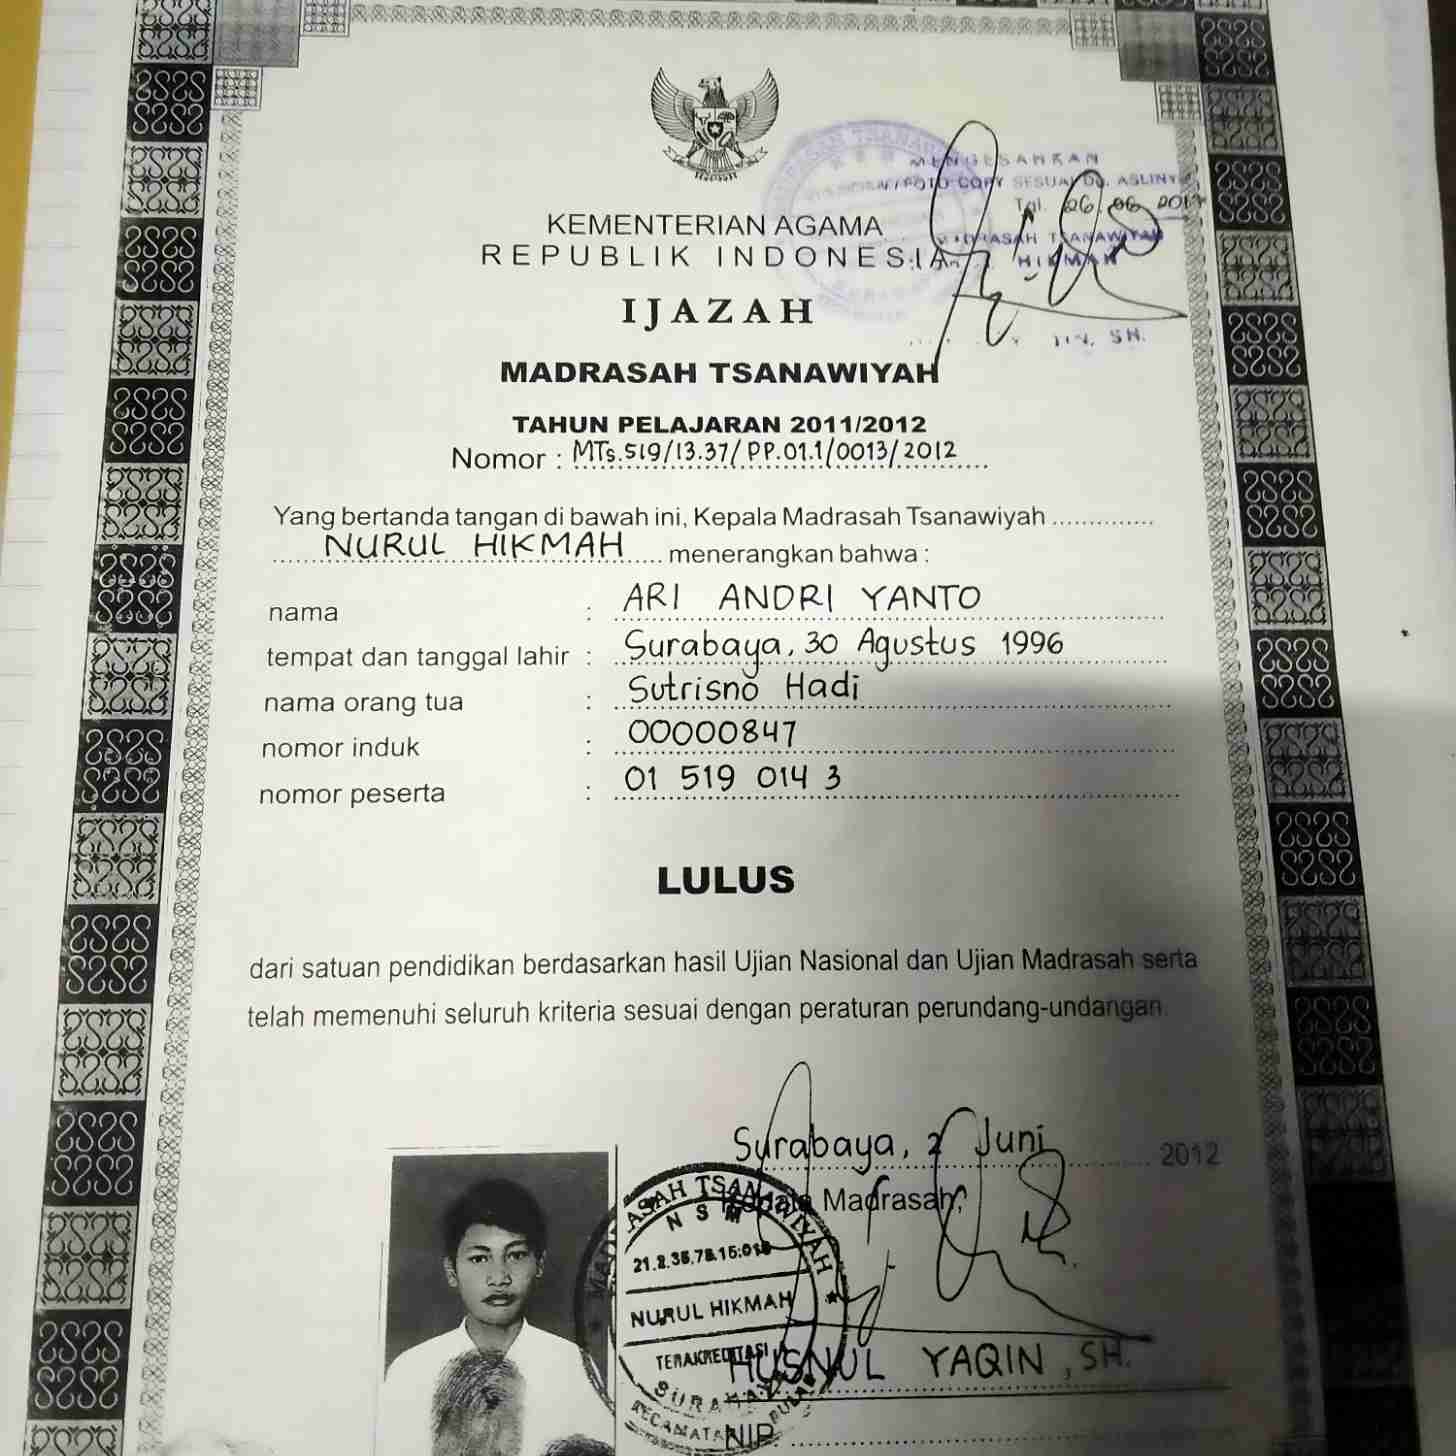 MENGESAHKAN
FOTO COPY SESUAI Dg. ASLINY
Tgl. 26.06 201
MADRASAH TSANAWIYAH
HIKMAH
SH.
KEMENTERIAN AGAMA
REPUBLIK INDONESIA
IJAZAH
MADRASAH TSANAWIYAH
TAHUN PELAJARAN 2011/2012
Nomor : MTs.519/13.37/PP.01.1/0013/2012
Yang bertanda tangan di bawah ini, Kepala Madrasah Tsanawiyah
NURUL HIKMAH menerangkan bahwa :
nama : ARI ANDRI YANTO
tempat dan tanggal lahir : Surabaya, 30 Agustus 1996
nama orang tua : Sutrisno Hadi
nomor induk : 00000847
nomor peserta : 01 519 014 3
LULUS
dari satuan pendidikan berdasarkan hasil Ujian Nasional dan Ujian Madrasah serta
telah memenuhi seluruh kriteria sesuai dengan peraturan perundang-undangan.
Surabaya, 2 Juni 2012
Kepala Madrasah,
MADRASAH TSANAWIYAH
NSM
NURUL HIKMAH
TERAKREDITASI
SURABAYA
HUSNUL YAQIN, SH.
NIP.